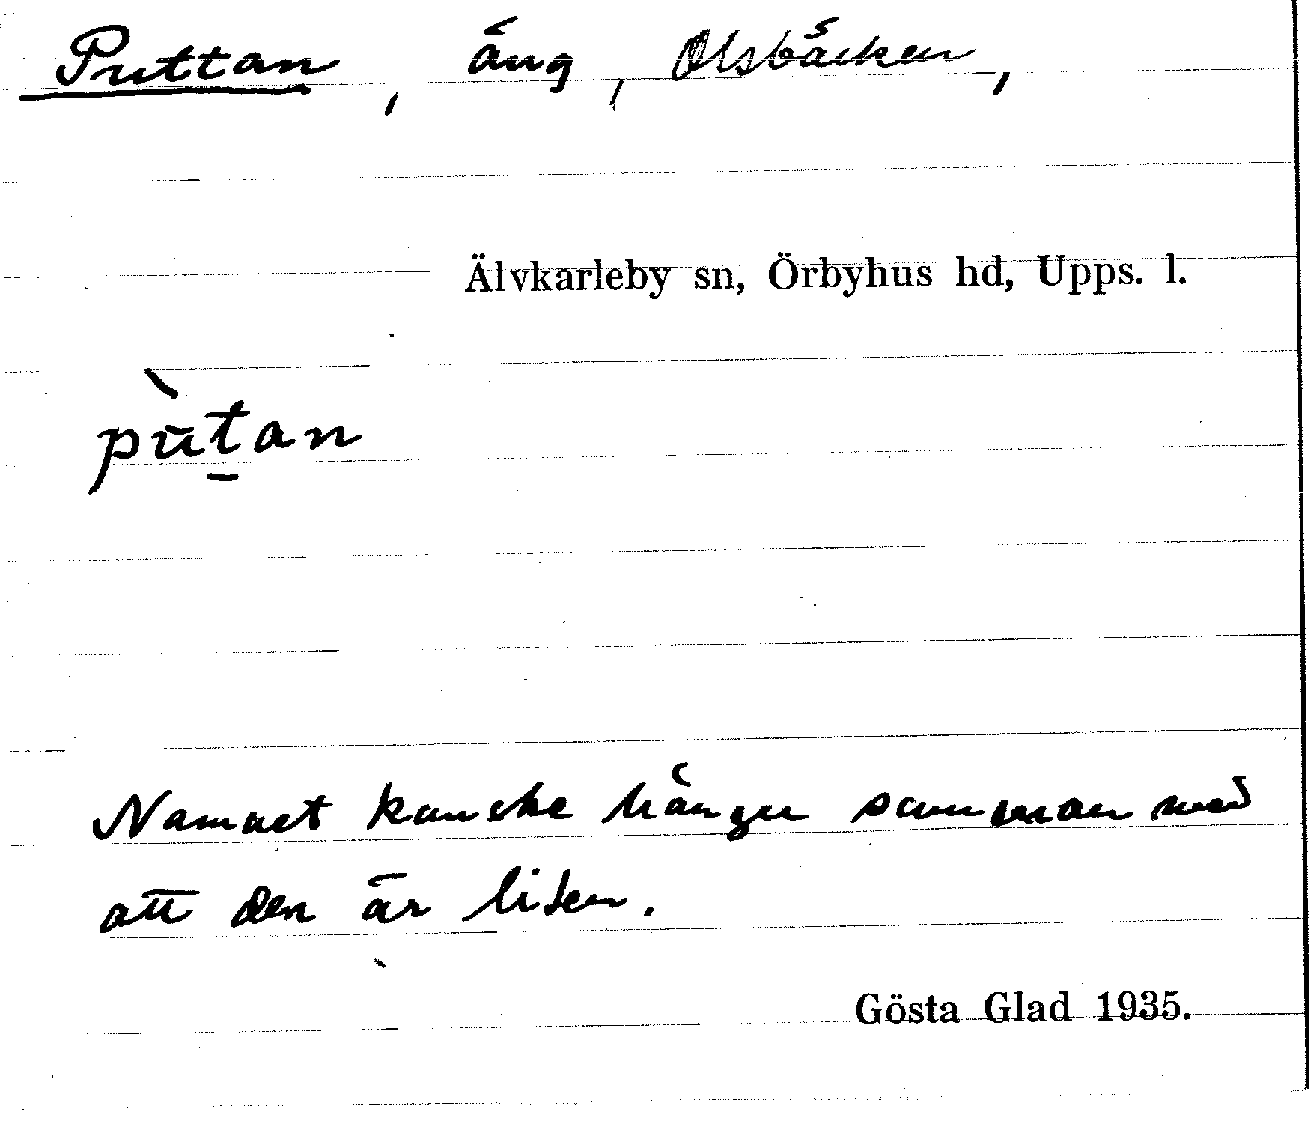 Puttan, äng, Olsbäcken,
Älvkarleby sn, Örbyhus hd, Upps. l.
pùt̠an
Namnet kanske hänger samman med
att den är liten.
Gösta Glad 1935.